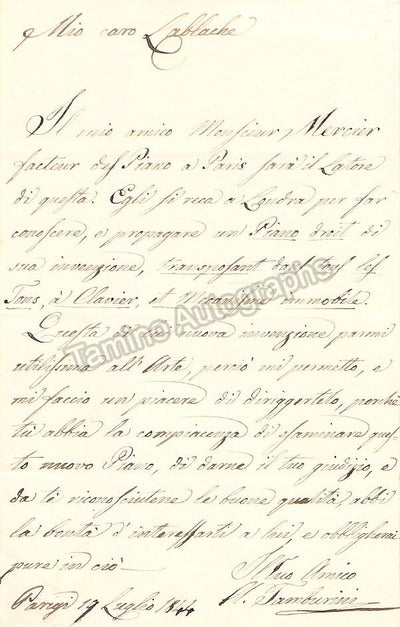 Mio caro Lablache
Il mio amico Monsieur Mercier
facteur des Piano a Paris sarà il Latore
di questa. Egli si reca a Londra per far
conoscere, e propagare un Piano droit di
sua invenzione, transposant dans tous les
Tons, à Clavier, et Mécanisme immobile.
Questa di lui nuova invenzione parmi
utilissima all' Arte, perciò mi permetto, e
mi faccio un piacere di diriggertelo, perchè
tu abbia la compiacenza di esaminare ques-
to nuovo Piano, di darne il tuo giudizio, e
da tè riconosciutene le buone qualità, abbi
la bontà d'interessarti a lui, e obbligherai
pure in ciò—
Il Tuo Amico
Parigi 19 Luglio 1844
A. Tamburini
Tamino Autographs